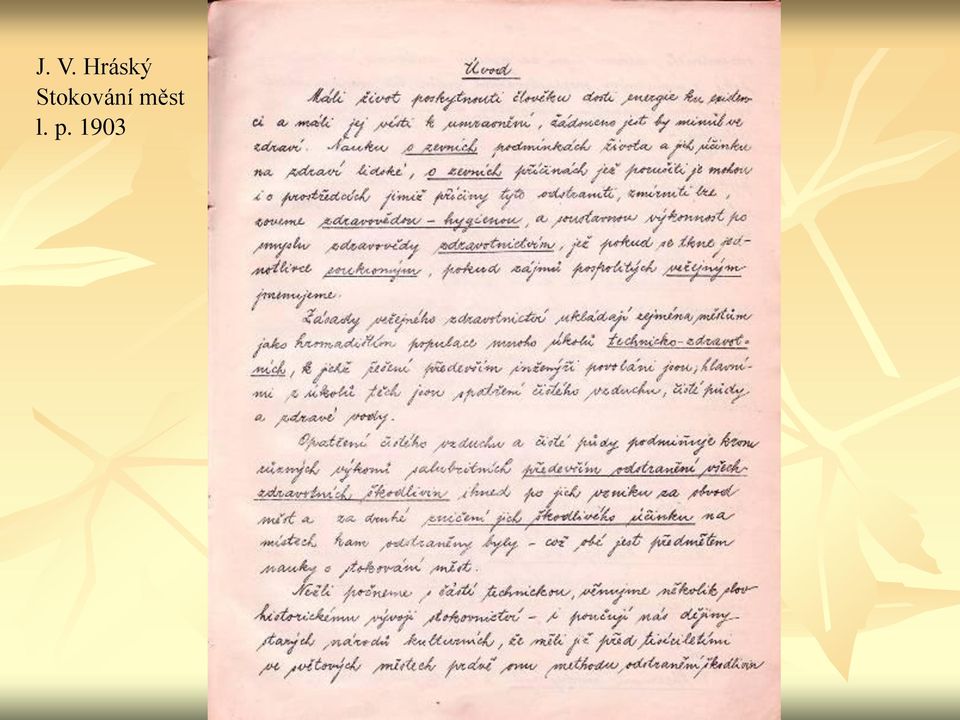 J. V. Hráský
Stokování měst
l. p. 1903
Úvod
Máli život poskytnouti člověku dosti energie ku existen-
ci a máli jej vésti k umravnění, žádoucno jest by minul ve
zdraví. Nauku o zevních podmínkách života a jich účinku
na zdraví lidské, o zevních příčinách jež porušiti je mohou
i o prostředcích jimiž příčiny tyto odstraniti, zmírniti lze,
zoveme zdravovědou – hygienou, a soustavnou výkonnost po
smyslu zdravovědy zdravotnictvím, jež pokud se tkne jed-
notlivce soukromým, pokud zájmů pospolitých veřejným
jmenujeme.
Zásady veřejného zdravotnictví ukládají zejména městům
jako hromadištím populace mnoho úkolů technicko-zdravot-
ních, k jichž řešení především inženýři povoláni jsou; hlavní-
mi z úkolů těch jsou opatření čistého vzduchu, čisté půdy
a zdravé vody.
Opatření čistého vzduchu a čisté půdy podmiňuje krom
různých výkonů salubritních především odstranění všech
zdravotních škodlivin ihned po jich vzniku za obvod
měst a za druhé zničení jich škodlivého účinku na
místech kam odstraněny byly – což obé jest předmětem
nauky o stokování měst.
Nežli počneme s částí technickou, věnujme několik slov
historickému vývoji stokovnictví – i poučují nás dějiny
starých národů kulturních, že měli již před tisíciletími
ve světových městech právě onu methodu odstranění škodlivin